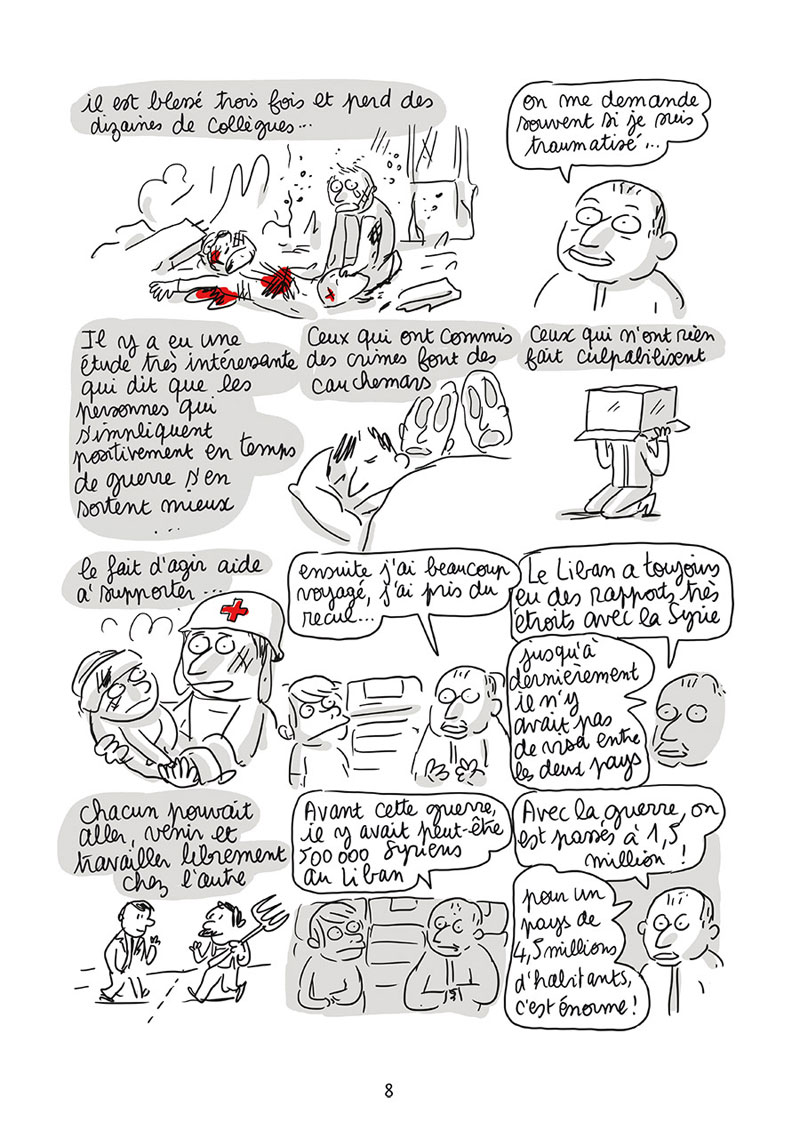 il est blessé trois fois et perd des
dizaines de collègues...
on me demande
souvent si je suis
traumatisé...
Il y a eu une
étude très intéressante
qui dit que les
personnes qui
s'impliquent
positivement en temps
de guerre s'en
sortent mieux
...
Ceux qui ont commis
des crimes font des
cauchemars
Ceux qui n'ont rien
fait culpabilisent
le fait d'agir aide
à supporter...
ensuite j'ai beaucoup
voyagé, j'ai pris du
recul...
Le Liban a toujours
eu des rapports très
étroits avec la Syrie
jusqu'à
dernièrement
il n'y
avait pas
de visa entre
les deux pays
chacun pouvait
aller, venir et
travailler librement
chez l'autre
Avant cette guerre,
il y avait peut-être
500 000 Syriens
au Liban
Avec la guerre, on
est passés à 1,5
million !
pour un
pays de
4,5 millions
d'habitants,
c'est énorme !
8